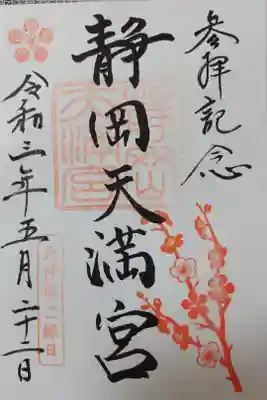 参拝記念
静岡天満宮
令和三年五月二十二日